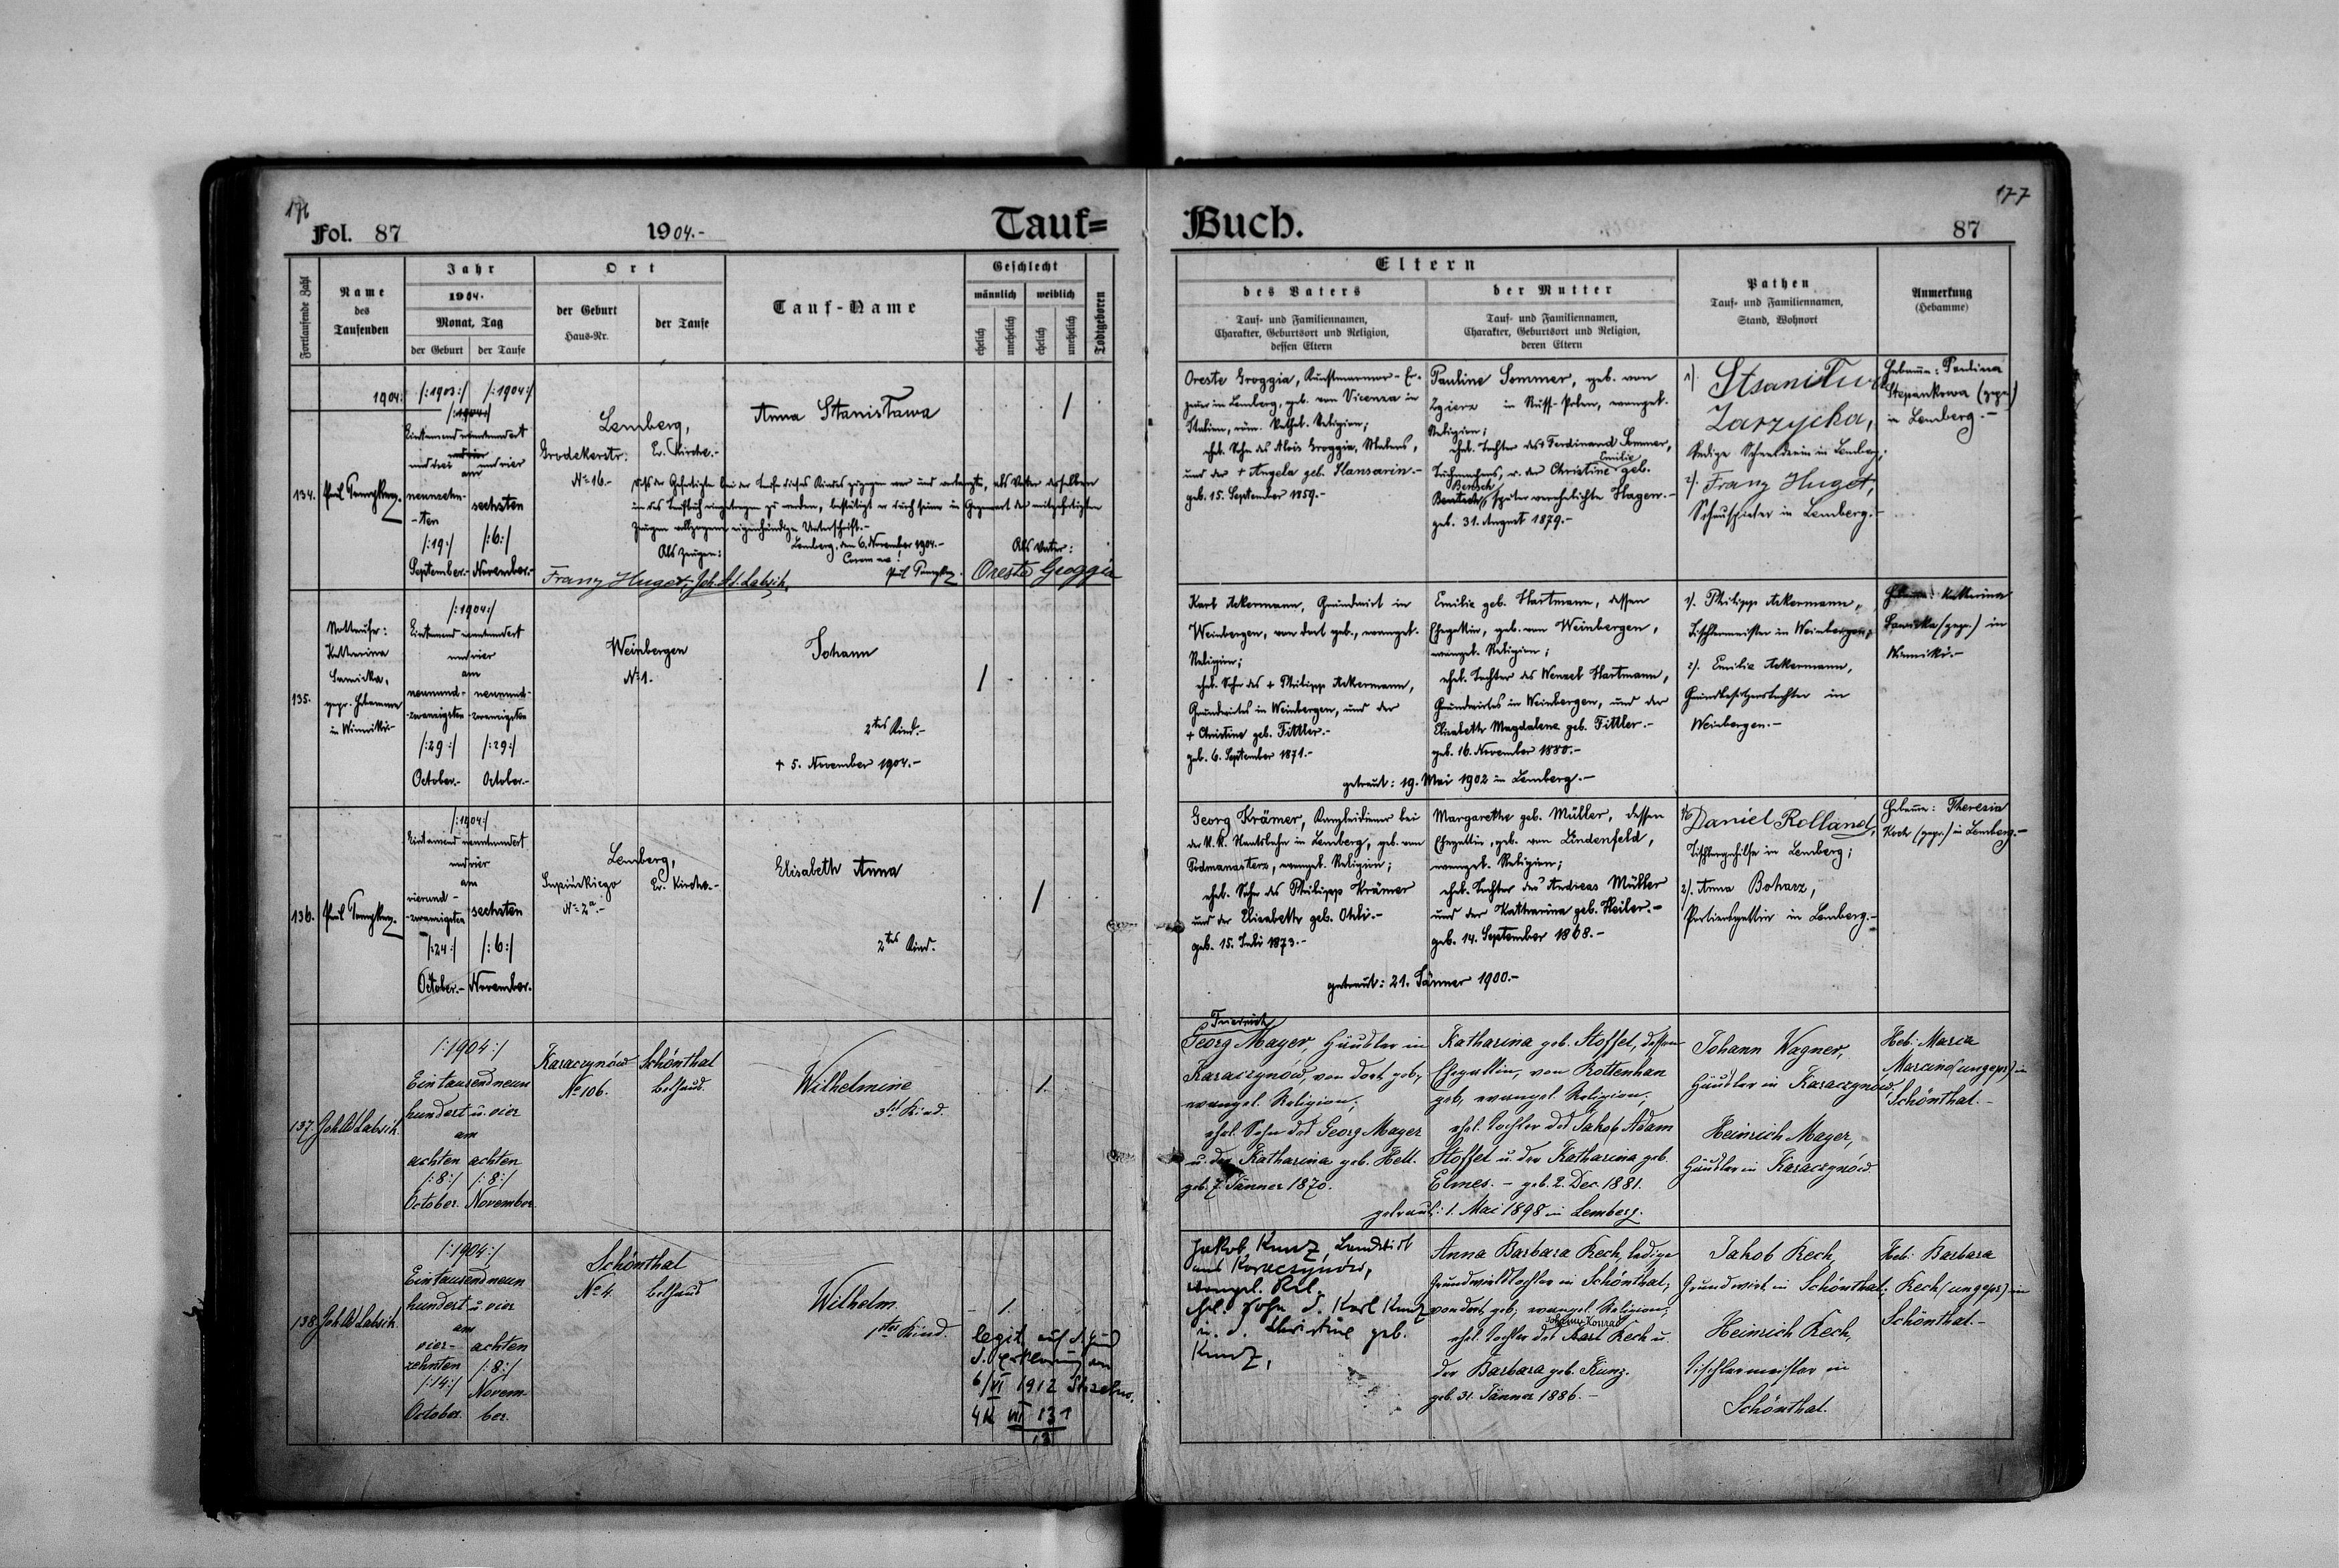 176
Fol. 87
1904.-
Tauf=
Fortlaufende Zahl
Name
des
Taufenden
Jahr
1904.
Monat, Tag
der Geburt
der Taufe
Ort
der Geburt
Haus-Nr.
der Taufe
Tauf-Name
Geschlecht
männlich
weiblich
ehelich
unehelich
ehelich
unehelich
Todtgeboren
1904.
/:1903:/ /:1904:/
Eintausend neunhundert
und drei und vier
am
134.
neunzehn- sechsten
-ten
/:19:/ /:6:/
September.- November.-
Lemberg,
Grodekerstr. Ev. Kirche.-
No 16.-
Anna Stanisława
/
Daß der Gefertigte bei der Taufe dieses Kindes zugegen war und verlangte, als Vater desselben
in das Taufbuch eingetragen zu werden, bestätigt er durch seine in Gegenwart der mitgefertigten
Zeugen vollzogene eigenhändige Unterschrift.-
Lemberg, den 6. November 1904.-
Als Zeugen: Als Vater:
Franz Huget, Joh. Ad. Labsik. Oreste Groggia
135.
Nottaufe:
Katharina
Sawicka,
gepr. Hebamme
in Winniki.-
/:1904:/
Eintausend neunhundert
und vier
am
neunund- neunund-
zwanzigsten zwanzigsten
/:29:/ /:29:/
October.- October.-
Weinbergen
No 1.
Johann
2tes Kind.-
+ 5. November 1904.-
/
136.
/:1904:/
Eintausend neunhundert
und vier
am
vierund-
-zwanzigsten sechsten
/:24:/ /:6:/
October.- November.
Lemberg,
Supińskiego Ev. Kirche.-
No 2a.-
Elisabeth Anna
2tes Kind.
/
137. Joh Ad Labsik.
/:1904:/
Eintausendneun
hundert u. vier
am
achten achten
/:8:/ /:8:/
October. November.
Karaczynów Schönthal
No 106. Bethaus.
Wilhelmine
3tes Kind.
1.
138. Joh Ad Labsik.
/:1904:/
Eintausendneun
hundert u. vier
am
vier- achten
zehnten /:8:/
/:14:/ Novem-
October. ber.
Schönthal
No 4. Bethaus
Wilhelm.
1stes Kind.
1.
legit. auf Grund
d. Erklärung am
6/VI 1912
177
Buch.
87
Eltern
des Vaters
Tauf- und Familiennamen,
Charakter, Geburtsort und Religion,
dessen Eltern
der Mutter
Tauf- und Familiennamen,
Charakter, Geburtsort und Religion,
deren Eltern
Pathen
Tauf- und Familiennamen,
Stand, Wohnort
Anmerkung
(Hebamme)
Oreste Groggia, Kunstmarmor-Er-
zeuger in Lemberg, geb. von Vicenza in
Italien, röm. kathol. Religion;
ehel. Sohn des Alois Groggia, Malers,
und der + Angela geb. Slansarin.-
geb. 15. September 1859.-
Pauline Sommer, geb. von
Zgierz in Russ. Polen, evangel.
Religion;
ehel. Tochter des + Ferdinand Sommer,
Tuchmachers, u. der Christine Emilie geb.
Bensch, später verehelichte Hagen.-
geb. 31. August 1879.-
1). Stanisława
Zarzycka,
ledige Schneiderin in Lemberg;
2). Franz Huget,
Schauspieler in Lemberg.-
Hebame: Paulina
Stepankowa (gepr.)
in Lemberg.-
Karl Ackermann, Grundwirt in
Weinbergen, von dort geb., evangel.
Religion;
ehel. Sohn des + Philipp Ackermann,
Grundwirtes in Weinbergen, und der
+ Christine geb. Fittler.-
geb. 6. September 1871.-
Emilie geb. Hartmann, dessen
Ehegattin, geb. von Weinbergen,
evangel. Religion;
ehel. Tochter des Wenzel Hartmann,
Grundwirtes in Weinbergen, und der
Elisabeth Magdalena geb. Fittler.-
geb. 16. November 1880.-
getraut: 19. Mai 1902 in Lemberg.-
1). Philipp Ackermann,
Tischlermeister in Weinbergen;
2). Emilie Ackermann,
Grundbesitzerstochter in
Weinbergen.-
Hebame: Katharina
Sawicka (gepr.) in
Winniki.-
Georg Krämer, Kanzleidiener bei
der k.k. Staatsbahn in Lemberg, geb. von
Podmanasterz, evangel. Religion;
ehel. Sohn des Philipp Krämer
und der Elisabeth geb. Ohli.-
geb. 15. Juli 1873.-
Margarethe geb. Müller, dessen
Ehegattin, geb. von Lindenfeld,
evangel. Religion;
ehel. Tochter des Andreas Müller
und der Katharina geb. Heiler.-
geb. 14. September 1868.-
getraut: 21. Jänner 1900.-
1). Daniel Rolland,
Tischlergehilfe in Lemberg;
2). Anna Boharz,
Portiersgattin in Lemberg.-
Hebame: Theresia
Koch (gepr.) in Lemberg.-
Friedrich
Georg Mayer, Häusler in
Karaczynów, von dort geb.,
evangel. Religion;
ehel. Sohn des Georg Mayer
u. der Katharina geb. Hell.
geb. 7. Jänner 1870.
Katharina geb. Stoffel, dessen
Ehegattin, von Rottenhan
geb., evangel. Religion;
ehel. Tochter des Jakob Adam
Stoffel u. der Katharina geb.
Elmes. - geb. 2. Dec. 1881.
getraut: 1. Mai 1898 in Lemberg.
Johann Wagner,
Häusler in Karaczynów;
Heinrich Mayer,
Häusler in Karaczynów.
Heb: Maria
Marcino (ungepr) in
Schönthal.-
Jakob Kunz, Landwirt
aus Karaczynów,
evangel. Rel.
ehel. Sohn d. Karl Kunz
u. d. Christine geb.
Kunz,
Anna Barbara Rech, ledige
Grundwirtstochter in Schönthal,
von dort geb., evangel. Religion;
Johann Konrad
ehel. Tochter des Karl Rech u.
der Barbara geb. Kunz.
geb. 31. Jänner 1886.-
Jakob Rech,
Grundwirt in Schönthal;
Heinrich Rech,
Tischlermeister in
Schönthal.
Heb: Barbara
Rech (ungepr) in
Schönthal.-